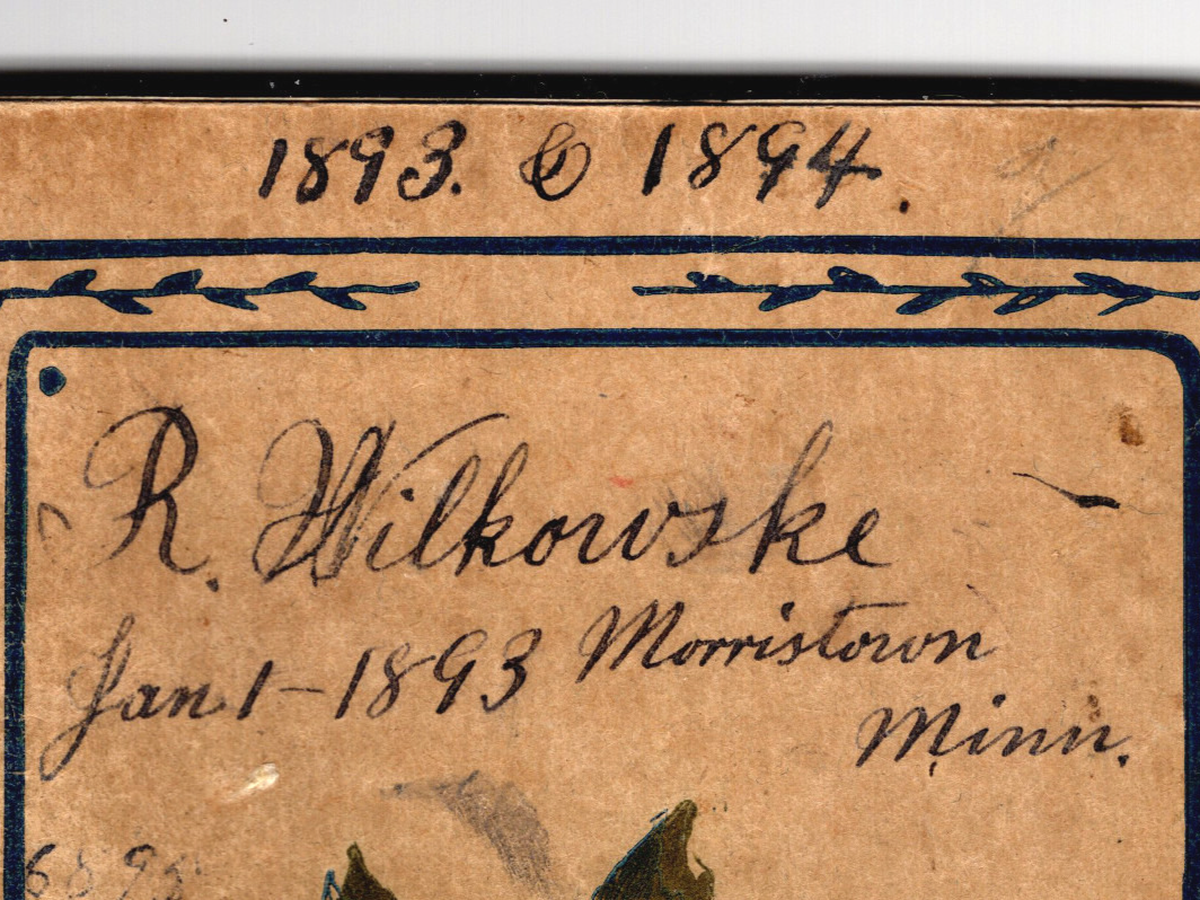 1893. & 1894.
R. Wilkowske
Jan 1 – 1893 Morristown
Minn.